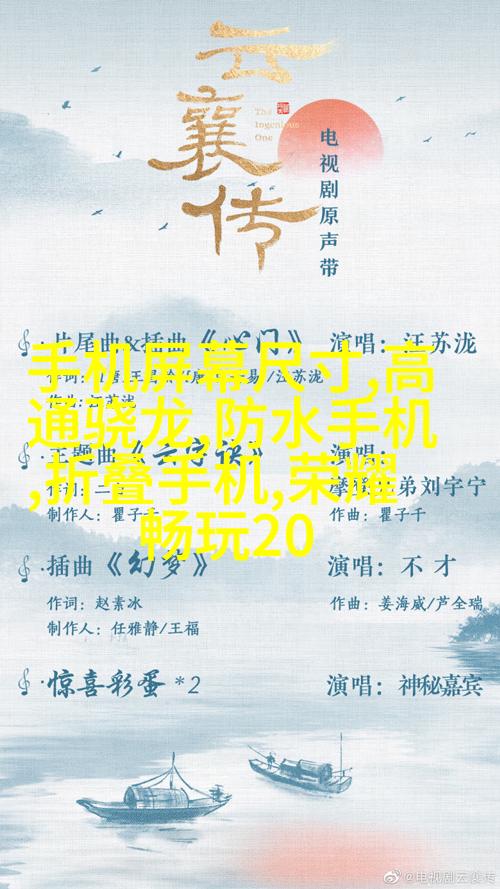 云襄传
The
Ingenious
One
电视剧原声带
片尾曲&插曲《心门》 演唱：汪苏泷
作曲：汪苏泷
手机屏幕尺寸,高
通骁龙,防水手机
,折叠手机,荣耀
畅玩20
主题曲《云字诀》 演唱：
弟刘宇宁
制作人：瞿子千 作曲：瞿子千
插曲《幻梦》 演唱：不才
作词：赵素冰 作曲：姜海威/芦全瑞
制作人：任雅静/王福
惊喜彩蛋 *2 演唱：神秘嘉宾
@电视剧云襄传